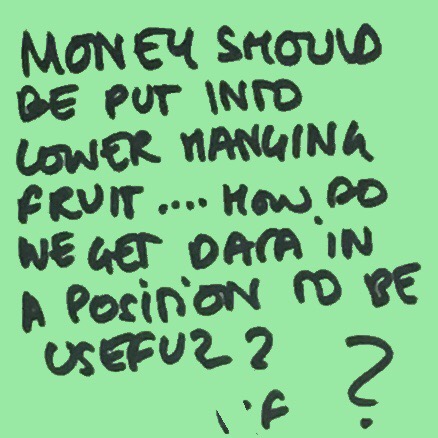 MONEY SHOULD
BE PUT INTO
LOWER HANGING
FRUIT .... HOW DO
WE GET DATA IN
A POSITION TO BE
USEFUL?
?